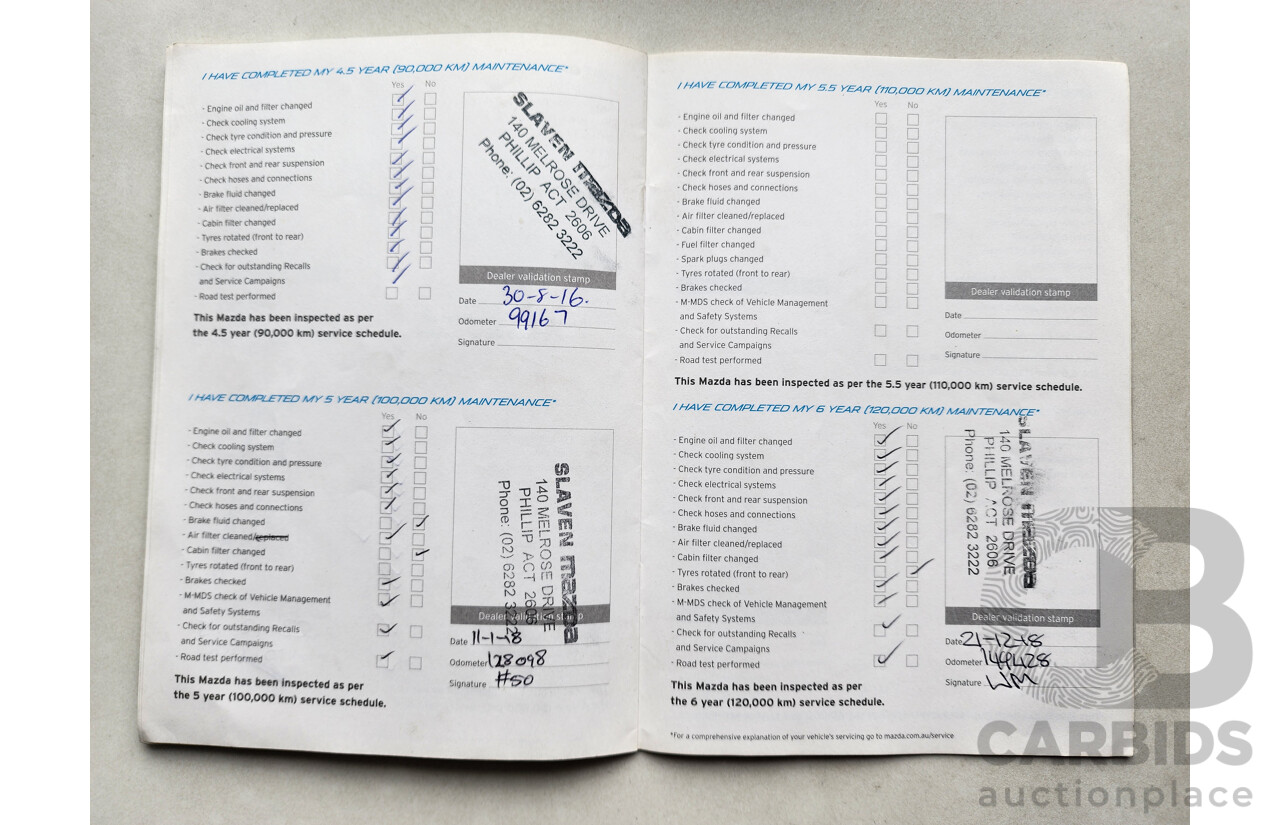 I HAVE COMPLETED MY 4.5 YEAR (90,000 KM) MAINTENANCE*
Yes No
- Engine oil and filter changed
- Check cooling system
- Check tyre condition and pressure
- Check electrical systems
- Check front and rear suspension
- Check hoses and connections
- Brake fluid changed
- Air filter cleaned/replaced
- Cabin filter changed
- Tyres rotated (front to rear)
- Brakes checked
- Check for outstanding Recalls
and Service Campaigns
- Road test performed
This Mazda has been inspected as per
the 4.5 year (90,000 km) service schedule.
SLAVEN mazda
140 MELROSE DRIVE
PHILLIP ACT 2606
Phone: (02) 6282 3222
Dealer validation stamp
Date 30-8-16.
Odometer 99167
Signature
I HAVE COMPLETED MY 5 YEAR (100,000 KM) MAINTENANCE*
Yes No
- Engine oil and filter changed
- Check cooling system
- Check tyre condition and pressure
- Check electrical systems
- Check front and rear suspension
- Check hoses and connections
- Brake fluid changed
- Air filter cleaned/replaced
- Cabin filter changed
- Tyres rotated (front to rear)
- Brakes checked
- M-MDS check of Vehicle Management
and Safety Systems
- Check for outstanding Recalls
and Service Campaigns
- Road test performed
This Mazda has been inspected as per
the 5 year (100,000 km) service schedule.
SLAVEN mazda
140 MELROSE DRIVE
PHILLIP ACT 2606
Phone: (02) 6282 3222
Dealer validation stamp
Date 11-1-18
Odometer 128098
Signature #50
I HAVE COMPLETED MY 5.5 YEAR (110,000 KM) MAINTENANCE*
Yes No
- Engine oil and filter changed
- Check cooling system
- Check tyre condition and pressure
- Check electrical systems
- Check front and rear suspension
- Check hoses and connections
- Brake fluid changed
- Air filter cleaned/replaced
- Cabin filter changed
- Fuel filter changed
- Spark plugs changed
- Tyres rotated (front to rear)
- Brakes checked
- M-MDS check of Vehicle Management
and Safety Systems
- Check for outstanding Recalls
and Service Campaigns
- Road test performed
This Mazda has been inspected as per the 5.5 year (110,000 km) service schedule.
Dealer validation stamp
Date
Odometer
Signature
I HAVE COMPLETED MY 6 YEAR (120,000 KM) MAINTENANCE*
Yes No
- Engine oil and filter changed
- Check cooling system
- Check tyre condition and pressure
- Check electrical systems
- Check front and rear suspension
- Check hoses and connections
- Brake fluid changed
- Air filter cleaned/replaced
- Cabin filter changed
- Tyres rotated (front to rear)
- Brakes checked
- M-MDS check of Vehicle Management
and Safety Systems
- Check for outstanding Recalls
and Service Campaigns
- Road test performed
This Mazda has been inspected as per
the 6 year (120,000 km) service schedule.
SLAVEN mazda
140 MELROSE DRIVE
PHILLIP ACT 2606
Phone: (02) 6282 3222
Dealer validation stamp
Date 21-12-18
Odometer 149428
Signature WM
*For a comprehensive explanation of your vehicle's servicing go to mazda.com.au/service
CARBIDS
auctionplace